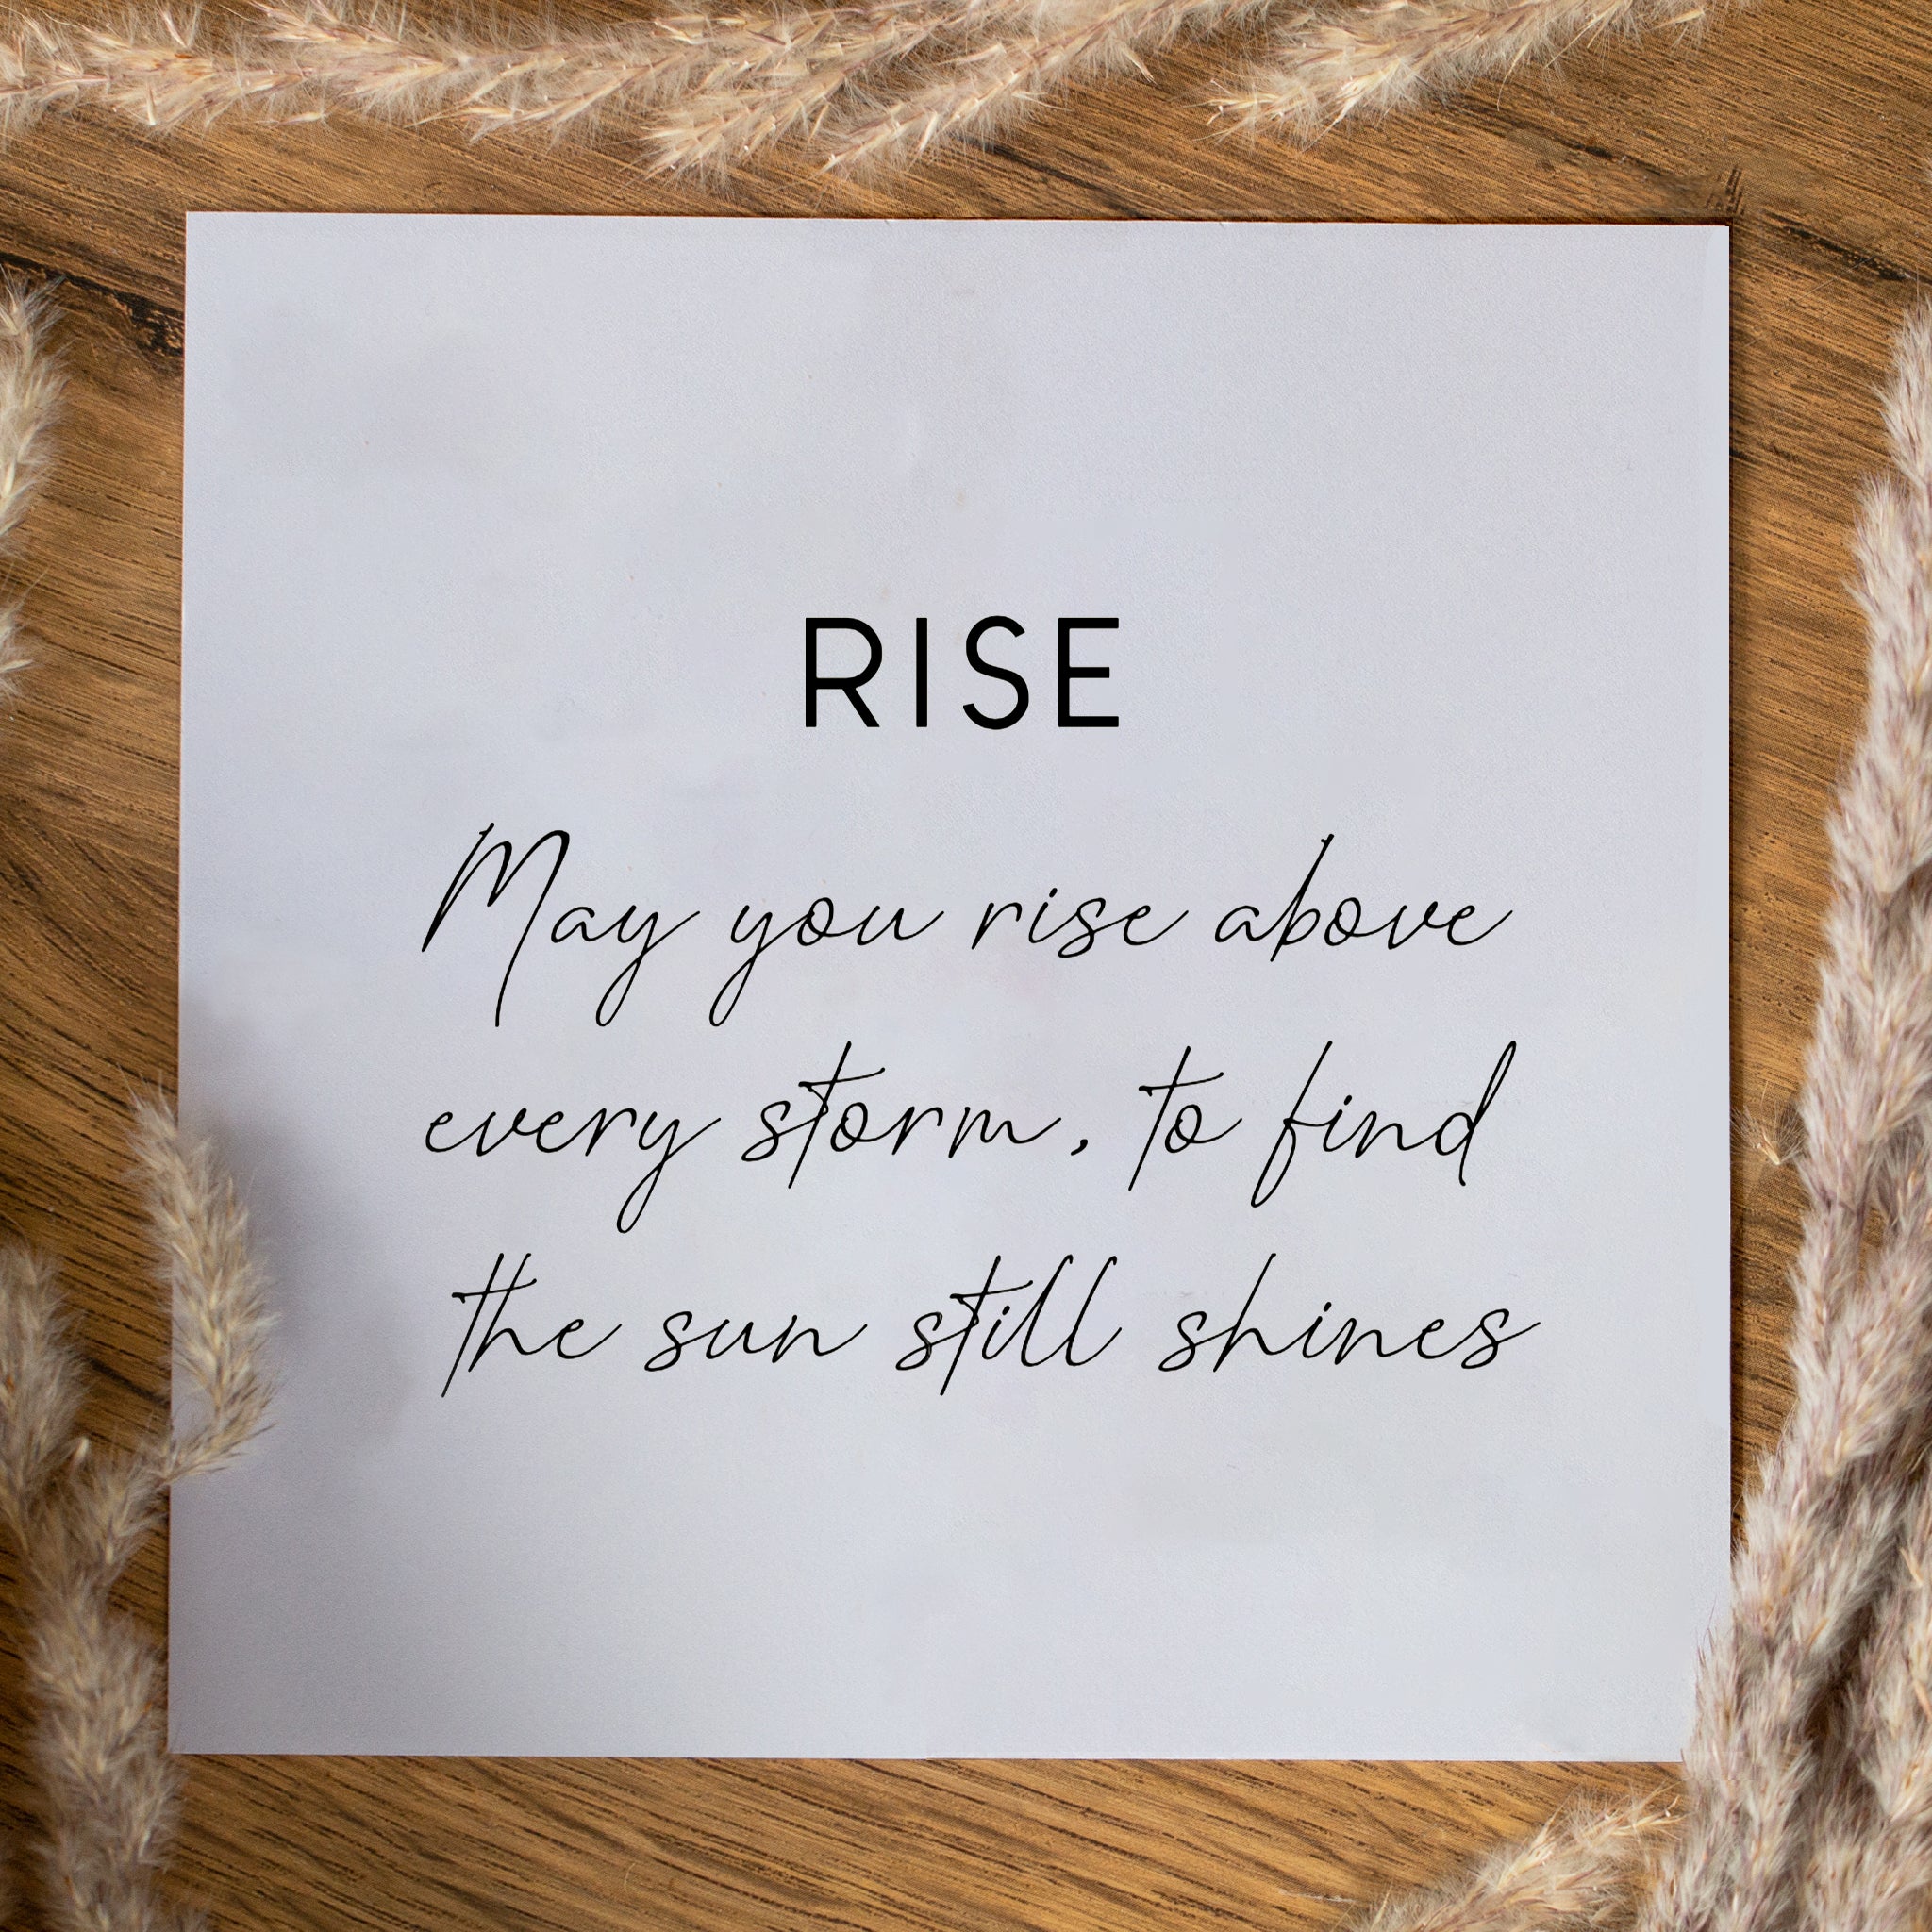 RISE
May you rise above
every storm, to find
the sun still shines